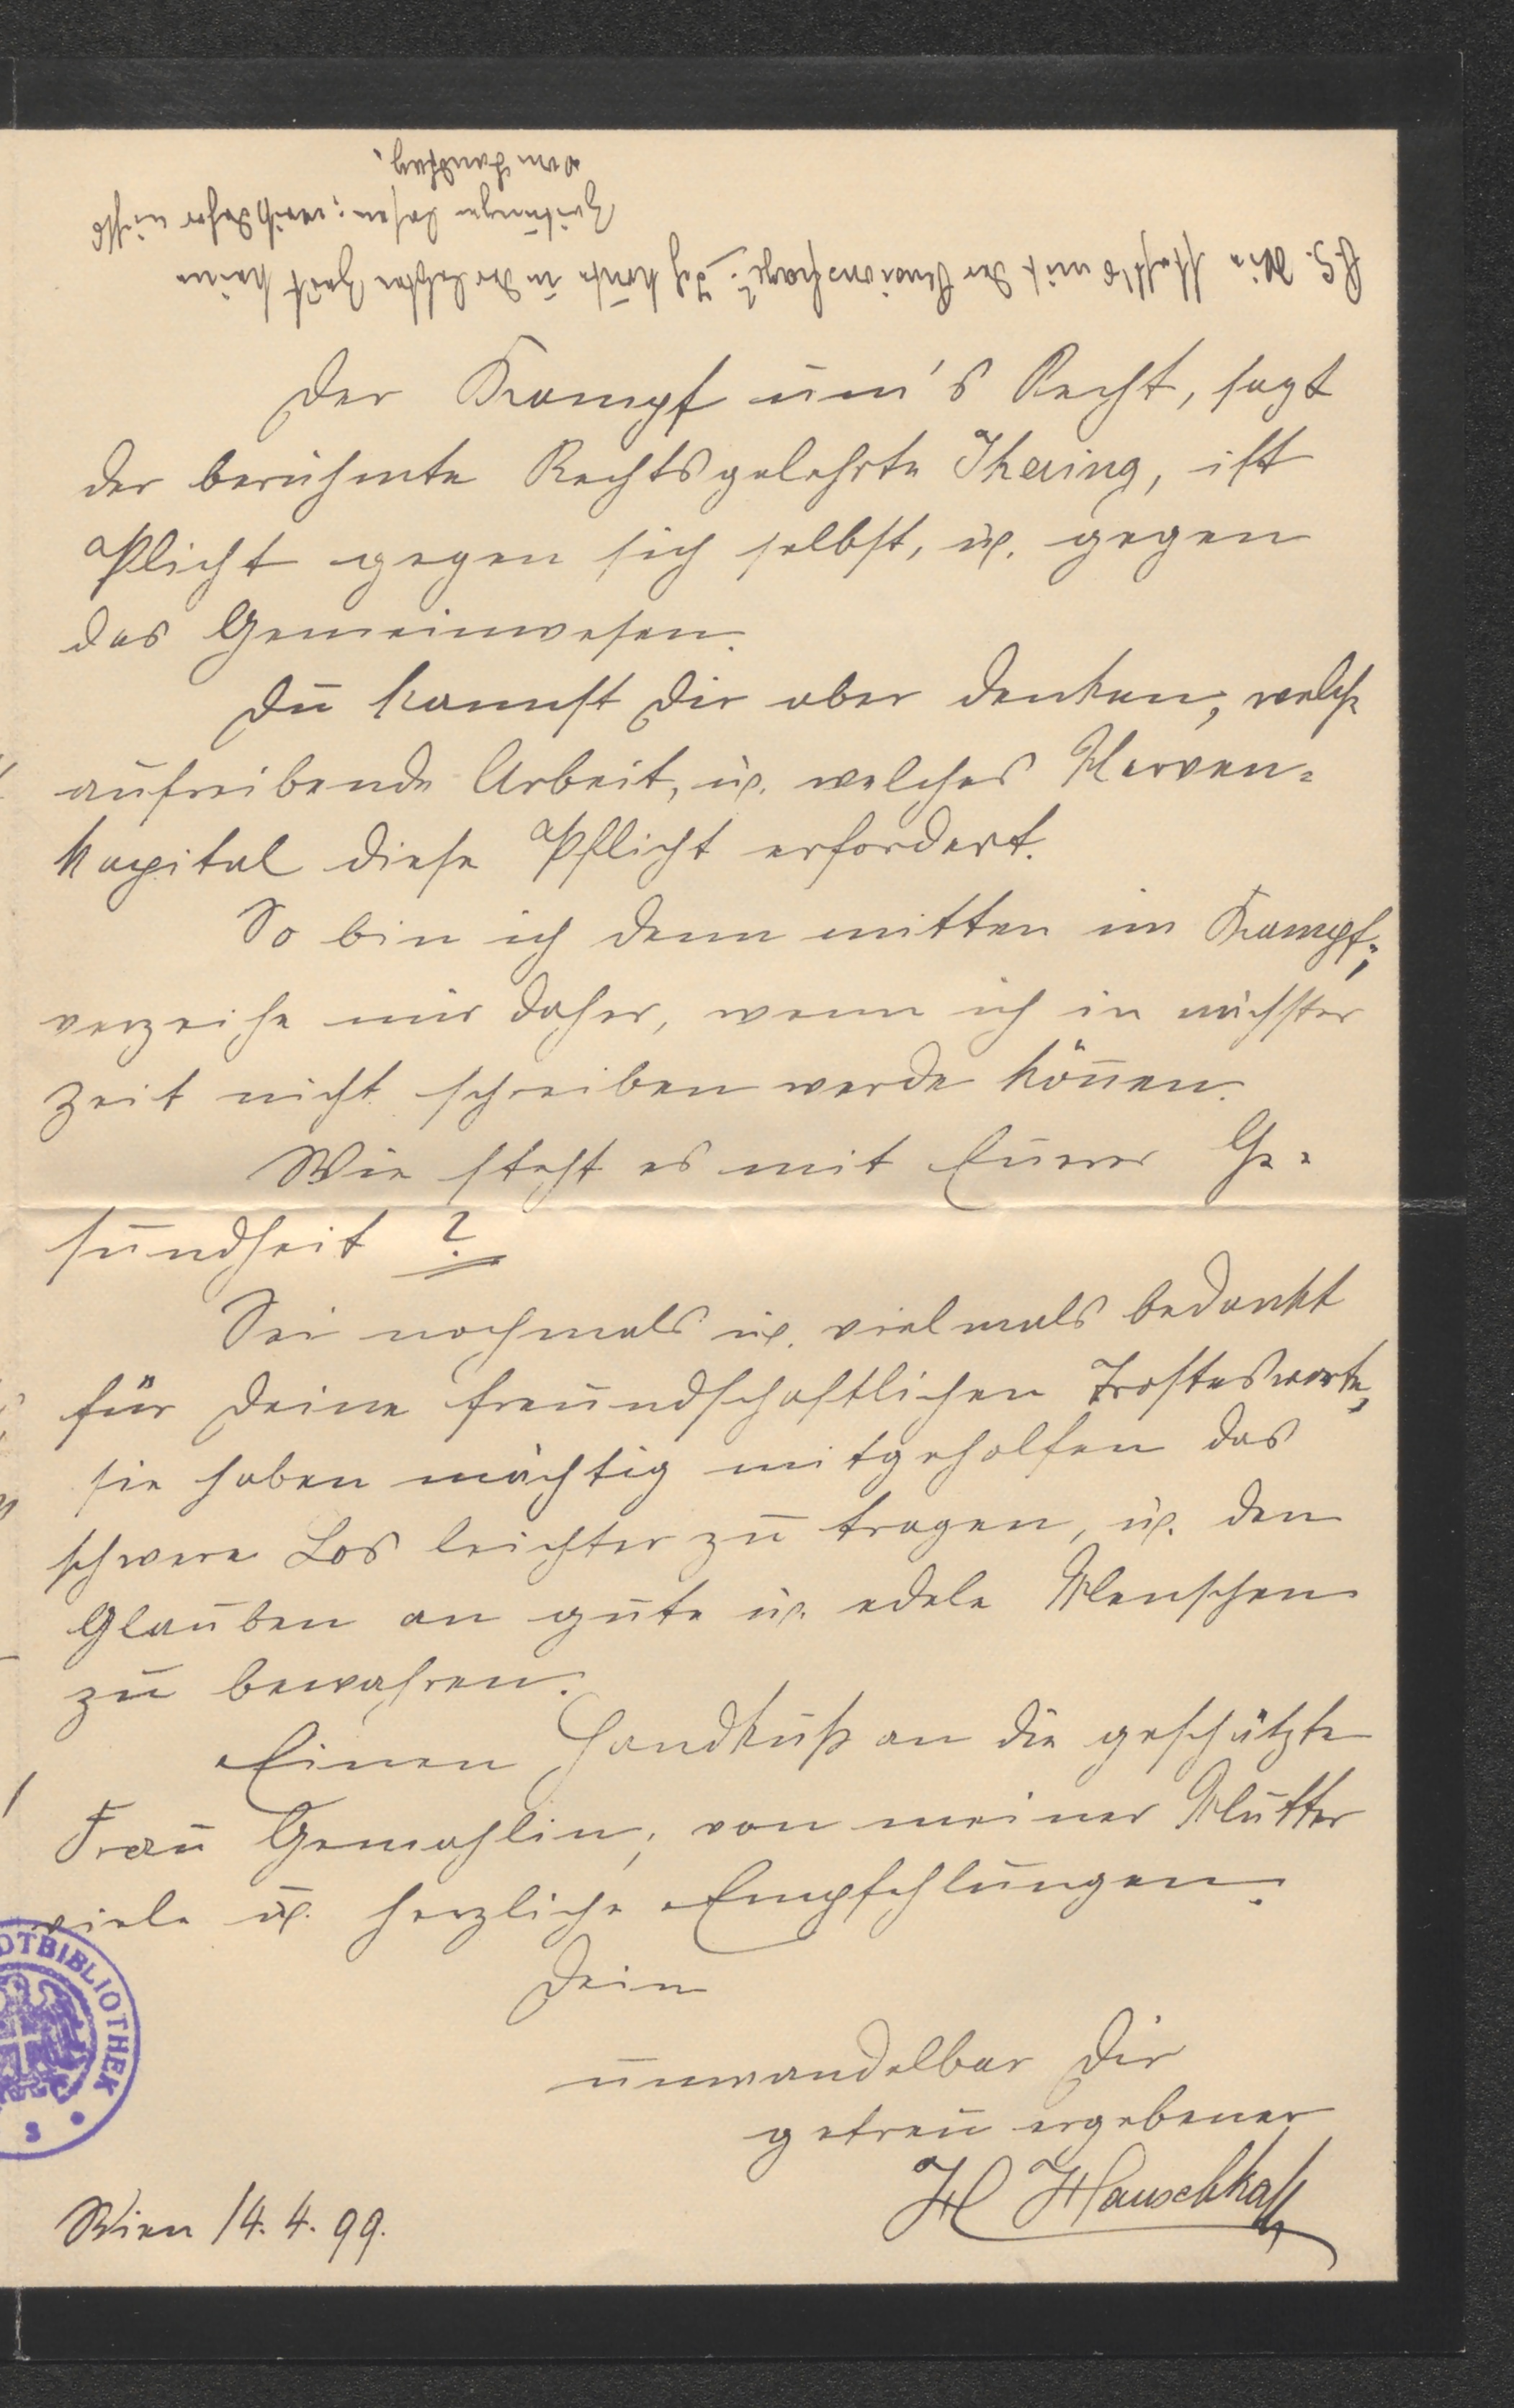 Der Kampf um's Recht, sagt
der berühmte Rechtsgelehrte Ihering, ist
Plicht gegen sich selbst, u. gegen
das Gemeinwesen.
Du kannst Dir aber denken, welch
aufreibende Arbeit, u. welches Nerven=
kapital diese Pflicht erfordert.
So bin ich denn mitten im Kampf;
verzeihe mir daher, wenn ich in nächster
Zeit nicht schreiben werde kön̄en.
Wie steht es mit Eurer Ge=
sundheit ?
Sei nochmals u. vielmals bedankt
für Deine freundschaftlichen Trostesworte,
sie haben mächtig mitgeholfen das
schwere Los leichter zu tragen, u. den
Glauben an gute u. edele Menschen
zu bewahren.
Einen Handkuß an die geschätzte
Frau Gemahlin; von meiner Mutter
viele u. herzliche Empfehlungen.
Dein
unwandelbar Dir
getreu ergebener
H Hauschka
Wien 14.4.99.
P.S. Wie steht's mit der Pensionsfrage? Ich konte in der letzten Zeit keine
Zeitungen lesen; weiß daher nichts
vom Landtag.
DTBIBLIOTHEK